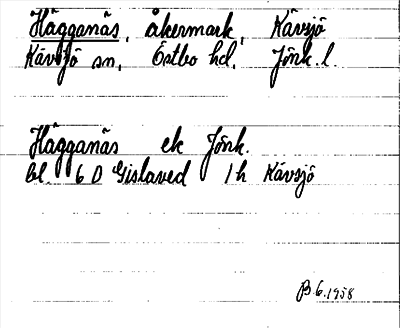 Hägganäs, åkermark, Kävsjö
Kävsjö sn, Östbo hd, Jönk. l.
Hägganäs ek Jönk.
bl. 6D Gislaved 1h Kävsjö
B.G. 1958